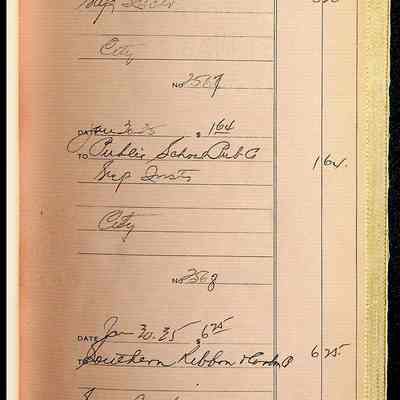 City
No 2567
DATE Jan 30.35 $ 1 64
TO Public School Pub Co 1 64.
City
No 2568
DATE Jan 30.35 $ 6 25
TO Southern Ribbon & Carbon Co 6 25.